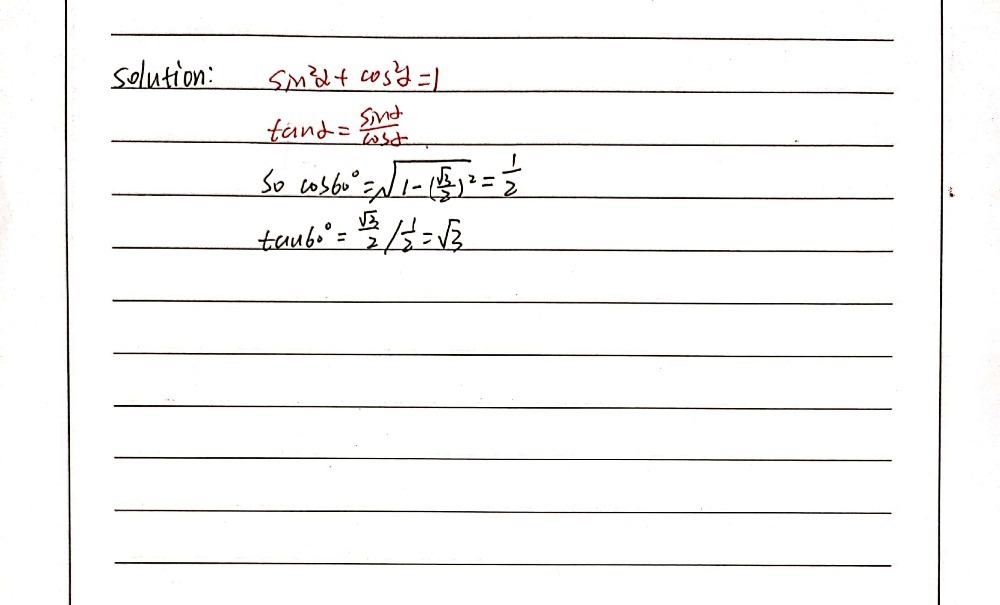 solution: sin²α + cos²α = 1
tanα = sinα/cosα
So cos60° = √(1-(√3/2)²) = 1/2
tan60° = √3/2 / 1/2 = √3